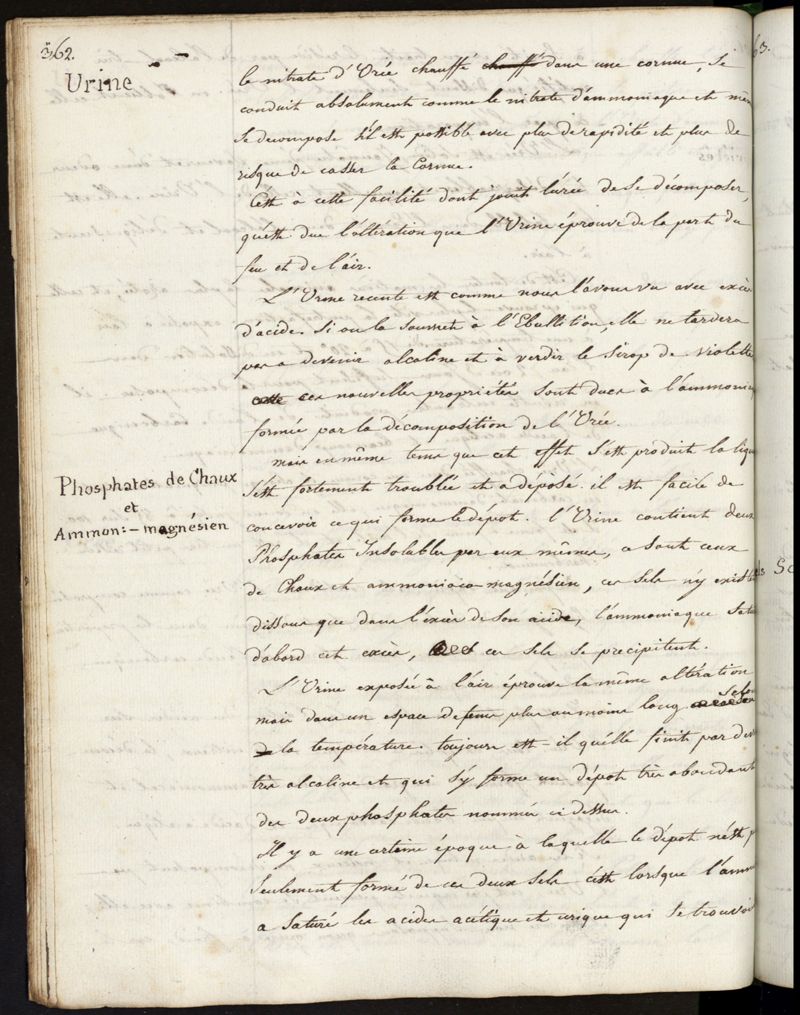 362.
Urine
le nitrate d'Urée chauffé chauffé dans une cornue, se
conduit absolument comme le nitrate d'ammoniaque et mêm
se decompose s'il est possible avec plus de rapidité et plus de
risque de casser la Cornue.
C'est à cette facilité dont jouit l'urée de se décomposer,
qu'est due l'altération que l'Urine éprouve de la part du
feu et de l'air.
L'Urine recente est comme nous l'avons vu avec excès
d'acide. Si on la soumet à l'Ebullition, elle ne tardera
pas a devenir alcaline et à verdir le sirop de violette
ces nouvelles propriétés sont dues à l'ammonia
formée par la décomposition de l'Urée.
mais en même tems que cet effet s'est produit la liqu
s'est fortement troublée et a déposé. il est facile de
concevoir ce qui forme le dépot. l'Urine contient deux
Phosphates Insolubles par eux mêmes, ce sont ceux
de Chaux et ammoniaco-magnésien, ces sels n'y exist
dissous que dans l'excès de son acide, l'ammoniaque sature
d'abord cet excès, ces sels se precipitent.
L'Urine exposée à l'air éprouve la même altération
mais dans un espace de tems plus ou moins long selon
la température. toujours est-il qu'elle finit par deve
très alcaline et qui s'y forme un dépot très abondant
des deux phosphates nommés ci dessus.
Il y a une certaine époque à laquelle le dépot n'est p
seulement formé de ces deux sels c'est lorsque l'amm
a saturé les acides acétique et urique qui se trouvoi
Phosphates de Chaux
et
Ammon:-magnésien